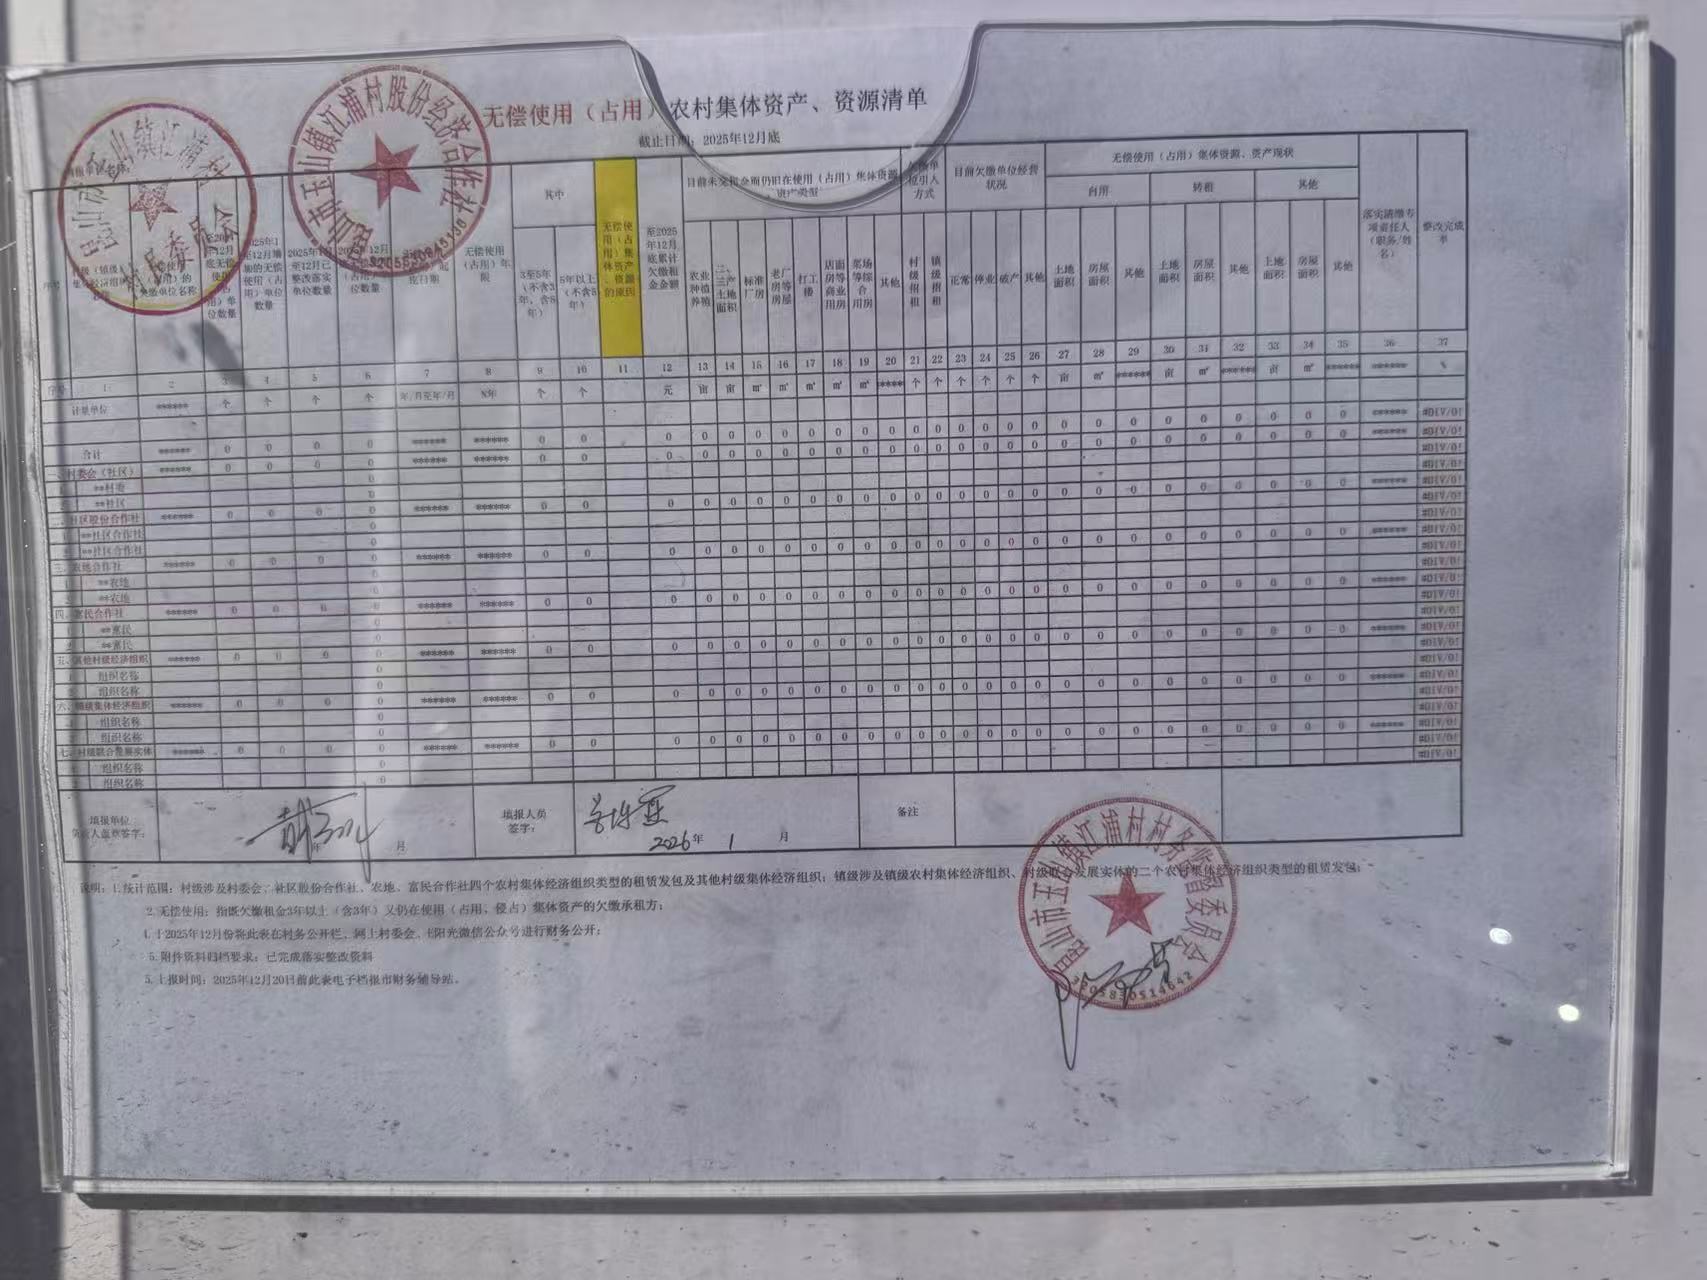 无偿使用（占用）农村集体资产、资源清单
截止日期：2025年12月底
昆山市玉山镇江浦村村民委员会
昆山市玉山镇江浦村股份经济合作社
其中
目前未交租金而仍旧在使用（占用）集体资源、资产类型
欠缴单位引入方式
目前欠缴单位经营状况
无偿使用（占用）集体资源、资产现状
自用 转租 其他
无偿使用（占用）年限
3至5年（不含3年，含5年）
5年以上（不含5年）
无偿使用（占用）集体资产、资源的原因
至2025年12月底累计欠缴租金金额
农业种植养殖
二、三产土地面积
标准厂房
老厂房等房屋
打工楼
店面房等商业用房
菜场等综合用房
其他
村级招租
镇级招租
正常 停业 破产 其他
土地面积 房屋面积 其他 土地面积 房屋面积 其他 土地面积 房屋面积 其他
落实清缴专项责任人（职务/姓名）
整改完成率
序号 1 2 3 4 5 6 7 8 9 10 11 12 13 14 15 16 17 18 19 20 21 22 23 24 25 26 27 28 29 30 31 32 33 34 35 36 37
计量单位 ****** 个 个 个 个 年/月至年/月 N年 个 个 元 亩 亩 ㎡ ㎡ ㎡ ㎡ ㎡ ***** 个 个 个 个 个 个 亩 ㎡ ****** 亩 ㎡ ****** 亩 ㎡ ****** ****** %
#DIV/0!
合计 ****** 0 0 0 0 ****** ****** 0 0 0 0 0 0 0 0 0 0 0 0 0 0 0 0 0 0 0 0 0 0 0 0 0 0 ****** #DIV/0!
一、村委会（社区） ****** 0 0 0 0 ****** ****** 0 0 0 0 0 0 0 0 0 0 0 0 0 0 0 0 0 0 0 0 0 0 0 0 0 0 ****** #DIV/0!
1 **村委 0 #DIV/0!
2 **社区 0 #DIV/0!
二、社区股份合作社 ****** 0 0 0 0 ****** ****** 0 0 0 0 0 0 0 0 0 0 0 0 0 0 0 0 0 0 0 0 0 0 0 0 0 0 ****** #DIV/0!
1 **社区合作社 0 #DIV/0!
2 **社区合作社 0 #DIV/0!
三、农地合作社 ****** 0 0 0 0 ****** ****** 0 0 0 0 0 0 0 0 0 0 0 0 0 0 0 0 0 0 0 0 0 0 0 0 0 0 ****** #DIV/0!
1 **农地 0 #DIV/0!
2 **农地 0 #DIV/0!
四、富民合作社 ****** 0 0 0 0 ****** ****** 0 0 0 0 0 0 0 0 0 0 0 0 0 0 0 0 0 0 0 0 0 0 0 0 0 0 ****** #DIV/0!
1 **富民 0 #DIV/0!
2 **富民 0 #DIV/0!
五、其他村级经济组织 ****** 0 0 0 0 ****** ****** 0 0 0 0 0 0 0 0 0 0 0 0 0 0 0 0 0 0 0 0 0 0 0 0 0 0 ****** #DIV/0!
1 组织名称 0 #DIV/0!
2 组织名称 0 #DIV/0!
六、镇级集体经济组织 ****** 0 0 0 0 ****** ****** 0 0 0 0 0 0 0 0 0 0 0 0 0 0 0 0 0 0 0 0 0 0 0 0 0 0 ****** #DIV/0!
1 组织名称 0 #DIV/0!
2 组织名称 0 #DIV/0!
七、村级联合发展实体 ****** 0 0 0 0 ****** ****** 0 0 0 0 0 0 0 0 0 0 0 0 0 0 0 0 0 0 0 0 0 0 0 0 0 0 ****** #DIV/0!
1 组织名称 0
2 组织名称 0
填报单位负责人盖章签字： 年 月
填报人员签字： 2026年 1 月
备注
说明：1.统计范围：村级涉及村委会、社区股份合作社、农地、富民合作社四个农村集体经济组织类型的租赁发包及其他村级集体经济组织；镇级涉及镇级农村集体经济组织、村级联合发展实体的二个农村集体经济组织类型的租赁发包；
2.无偿使用：指既欠缴租金3年以上（含3年）又仍在使用（占用、侵占）集体资产的欠缴承租方；
4.于2025年12月份将此表在村务公开栏、网上村委会、E阳光微信公众号进行财务公开；
5.附件资料归档要求：已完成落实整改资料
5.上报时间：2025年12月20日前此表电子档报市财务辅导站。
昆山市玉山镇江浦村村务监督委员会